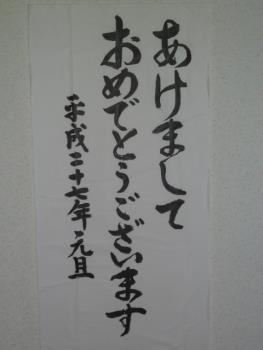 あけまして
おめでとうございます
平成二十七年元旦